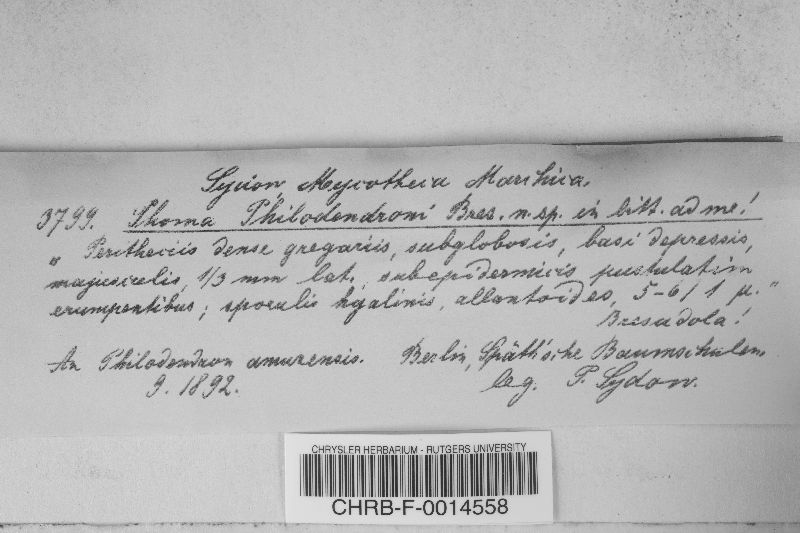 Sydow, Mycotheca Marchica.
3799. Phoma Philodendroni Bres. n. sp. in litt. ad me!
„Peritheciis dense gregariis, subglobosis, basi depressis,
majusculis, 1/3 mm lat., subepidermicis pustulatim
erumpentibus; sporulis hyalinis, allantoides, 5-6/1 µ."
Bresadola!
An Philodendron amurensis. Berlin, Späth'sche Baumschulen.
9. 1892. leg. P. Sydow.
CHRYSLER HERBARIUM - RUTGERS UNIVERSITY
CHRB-F-0014558